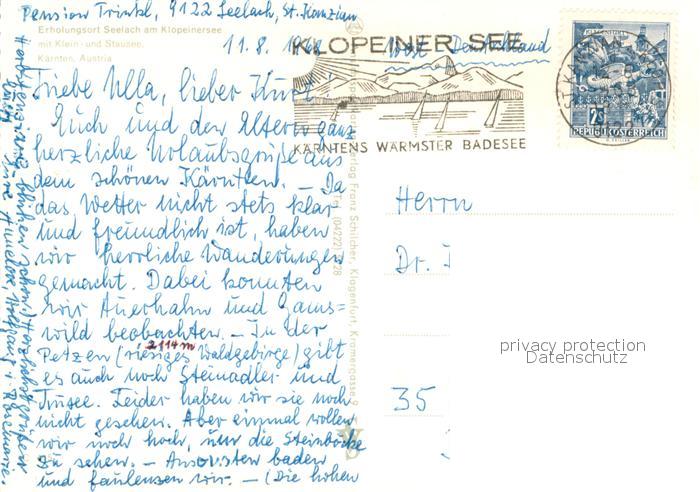 Pension Trinkl, 9122 Seelach, St. Kanzian
Erholungsort Seelach am Klopeinersee
mit Klein- und Stausee,
Kärnten, Austria
11.8.
Liebe Ulla, lieber Kurt!
Euch und den Eltern ganz
herzliche Urlaubsgrüße aus
dem schönen Kärnten. – Da
das Wetter nicht stets klar
und freundlich ist, haben
wir herrliche Wanderungen
gemacht. Dabei konnten
wir Auerhahn und Gams=
wild beobachten. – In der
2114m
Petzen (riesiges Waldgebirge) gibt
es auch noch Steinadler und
Leider haben wir sie noch
nicht gesehen. Aber einmal wollen
wir noch hoch, um die Steinböcke
zu sehen. – Ansonsten baden
und faulenzen wir. – (Die hohen
Verlag Franz Schilcher, Klagenfurt, Kramergasse
KLOPEINER SEE
West Deutschland
KÄRNTENS WÄRMSTER BADESEE
ST. KANZIAN
2S
REPUBLIK ÖSTERREICH
Herrn
Dr. I
35
privacy protection
Datenschutz